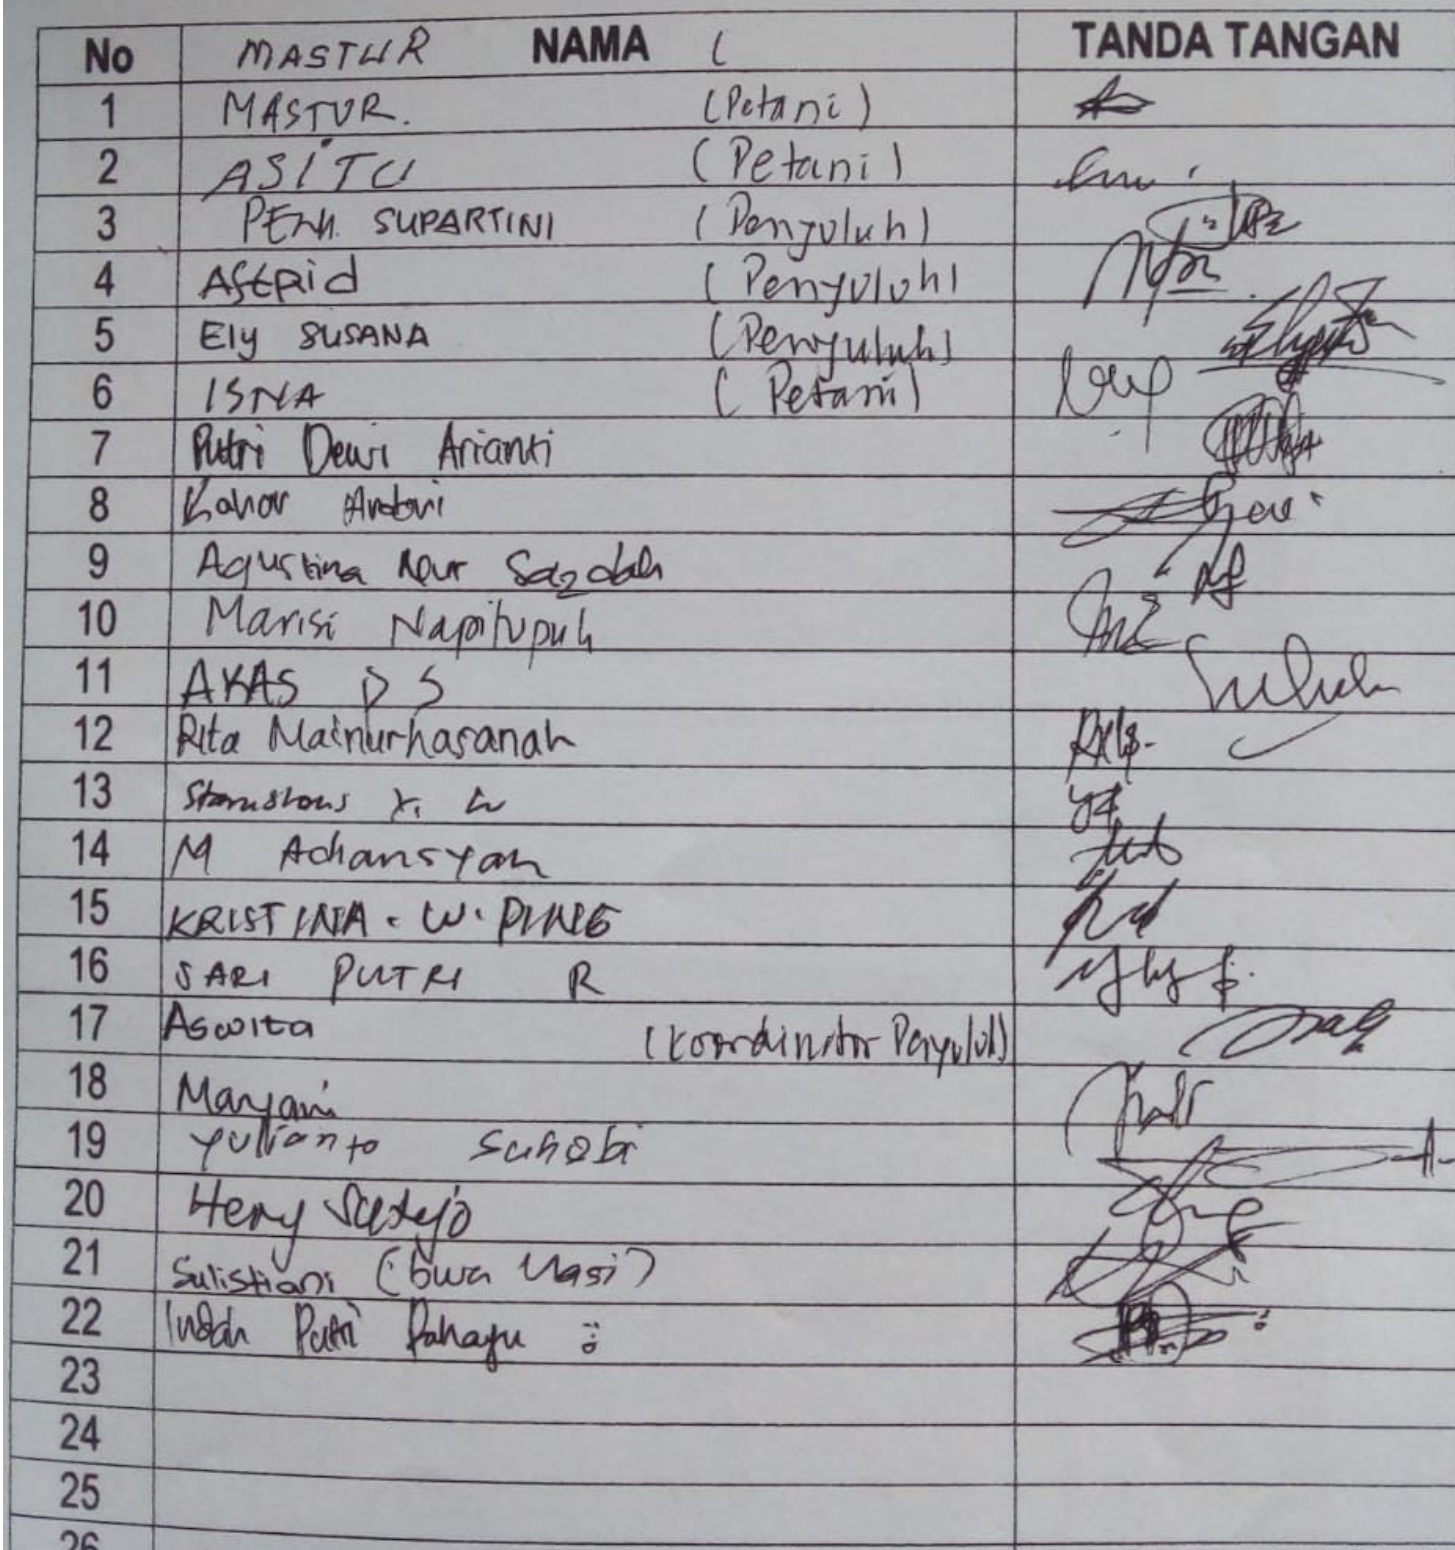 No MASTUR NAMA ( TANDA TANGAN
1 MASTUR. (Petani)
2 ASITU (Petani)
3 SUPARTINI (Penyuluh)
4 Astrid (Penyuluh)
5 Ely SUSANA (Penyuluh)
6 ISNA (Petani)
7 Putri Dewi Arianti
8
9 Agustina Nur
10 Marisi Napitupulu
11 AKAS D S
12 Rita Mainurhasanah
13
14 M Adhansyah
15 KRISTINA. W. PUNG
16 SARI PUTRI R
17 Aswita (Koordinator Penyuluh)
18 Maryani
19 Yulianto Suhobi
20 Hery Sutejo
21 Sulistiani (
22 Indah Putri Rahayu
23
24
25
26